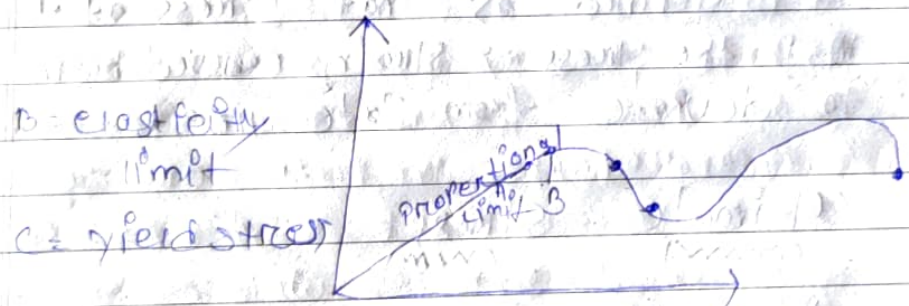 B = elasticity
limit
C = yield stress
Propertional
limit B